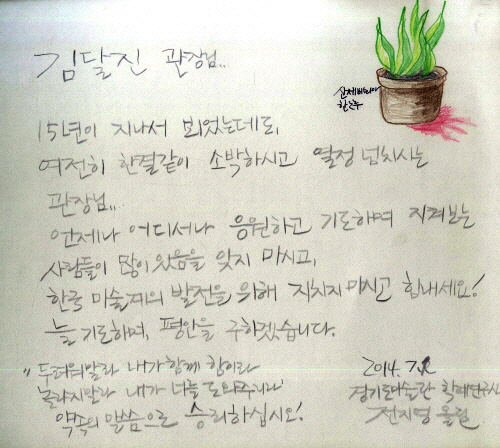 김달진 관장님..
산세베리아
한그루
15년이 지나서 뵈었는데도,
여전히 한결같이 소박하시고 열정 넘치시는
관장님..
언제나 어디서나 응원하고 기도하며 지켜보는
사람들이 많이 있음을 잊지 마시고,
한국 미술계의 발전을 위해 지치지 마시고 힘내세요!
늘 기도하며, 평안을 구하겠습니다.
"두려워말라 내가 함께 함이라
놀라지말라 내가 너를 도와주리라"
약속의 말씀으로 승리하십시오!
2014. 7.
경기도미술관 학예연구사
전지영 올림